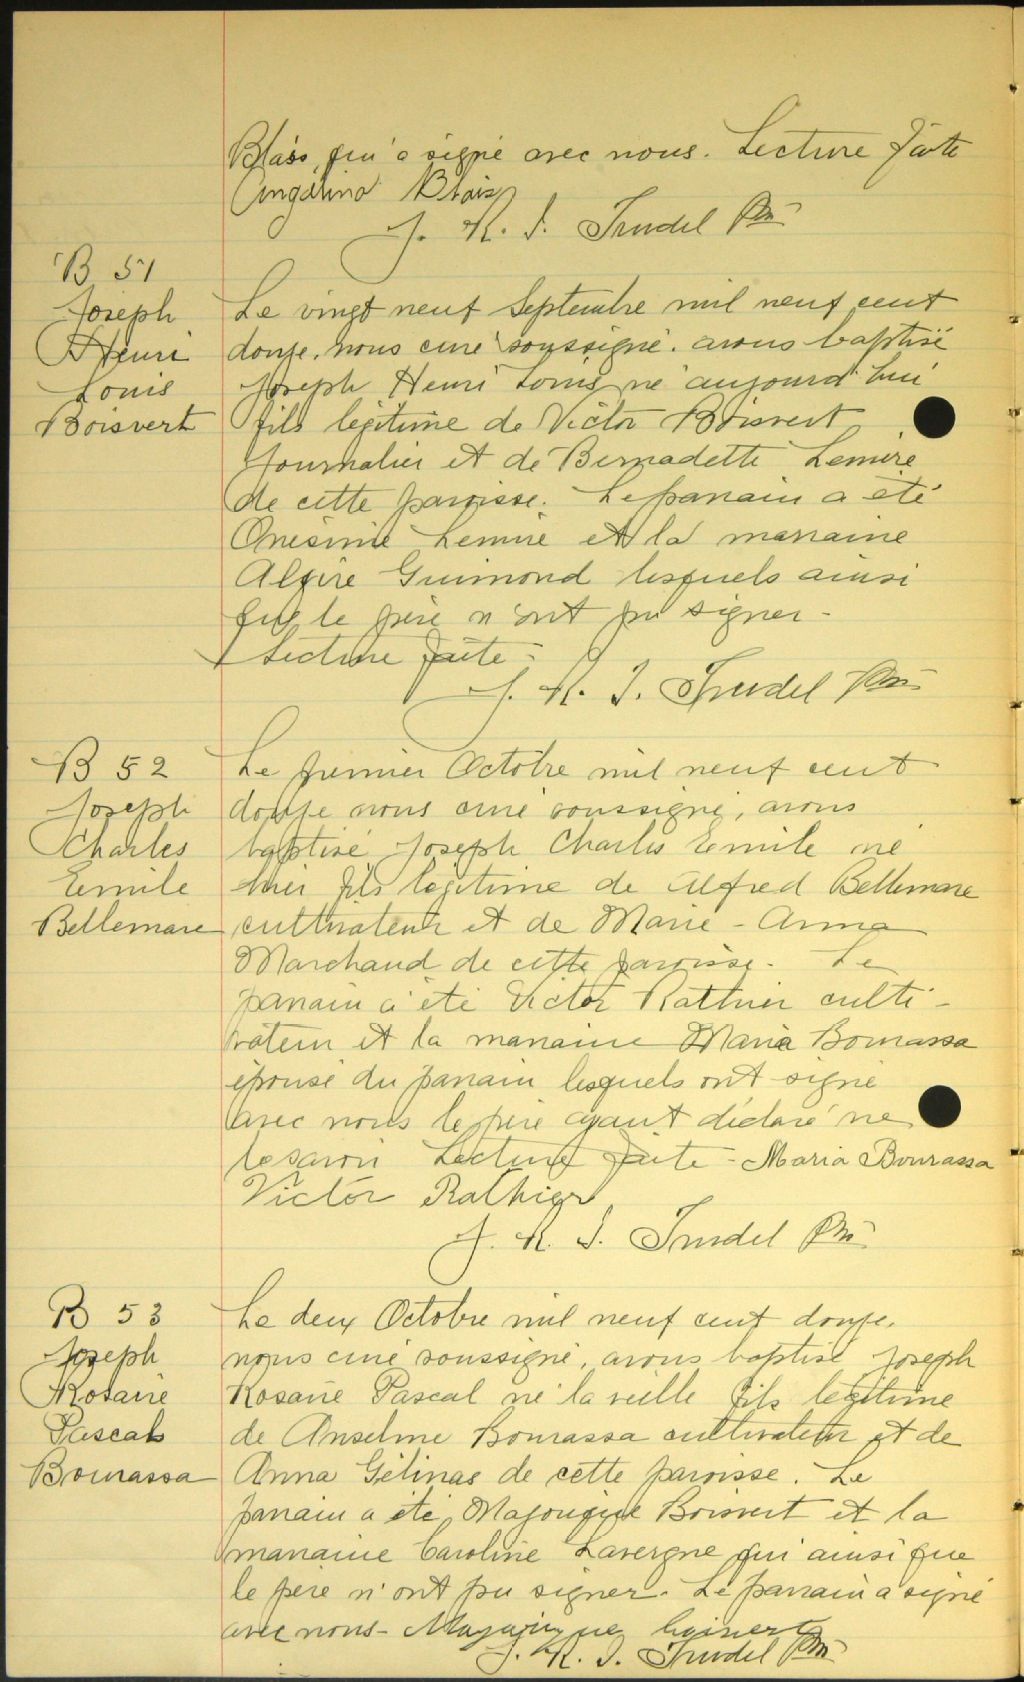 Blais, qui a signé avec nous. Lecture faite
Angelina Blais
J. R. I. Trudel Ptre
B 51
Joseph
Henri
Louis
Boisvert
Le vingt neuf Septembre mil neuf cent
douze, nous curé soussigné, avons baptisé
Joseph Henri Louis né aujourd'hui
fils légitime de Victor Boisvert
Journalier et de Bernadette Lemire
de cette paroisse. Le parrain a été
Onésime Lemire et la marraine
Alfire Guimond lesquels ainsi
que le père n'ont pu signer -
Lecture faite -
J. R. I. Trudel Ptre
B 52
Joseph
Charles
Emile
Bellemare
Le premier Octobre mil neuf cent
douze nous curé soussigné, avons
baptisé Joseph Charles Emile né
hier fils légitime de Alfred Bellemare
cultivateur et de Marie - Anna
Marchand de cette paroisse. Le
parrain a été Victor Rathier culti-
vateur et la marraine Maria Bourassa
épouse du parrain lesquels ont signé
avec nous le père ayant déclaré ne
le savoir Lecture faite - Maria Bourassa
Victor Rathier
J. R. I. Trudel Ptre
B 53
Joseph
Rosaire
Pascal
Bourassa
Le deux Octobre mil neuf cent douze,
nous curé soussigné, avons baptisé Joseph
Rosaire Pascal né la veille fils légitime
de Anselme Bourassa cultivateur et de
Anna Gélinas de cette paroisse. Le
parrain a été Majorique Boisvert et la
marraine Caroline Lavergne qui ainsi que
le père n'ont pu signer. Le parrain a signé
avec nous - Majorique
J. R. I. Trudel Ptre